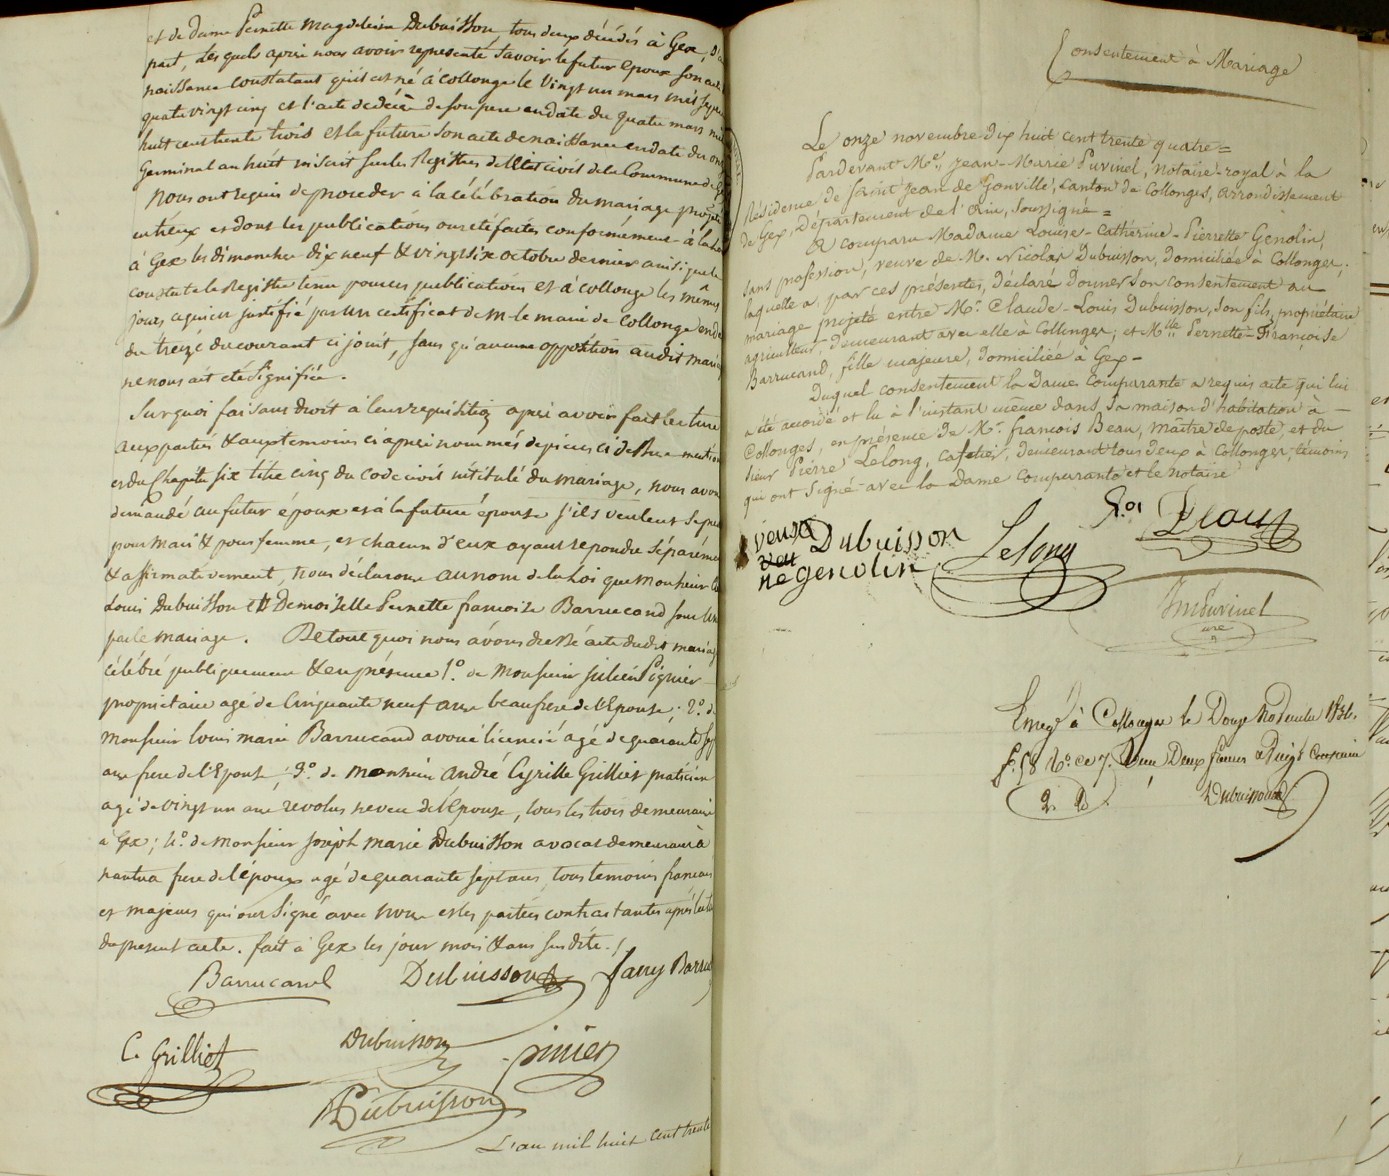 et de Dame Pernette Magdeleine Dubuisson, tous deux décédés à Gex, d'a
part, Lesquels après nous avoir représenté savoir le futur époux son acte
naissance constatant qu'il est né à Collonge le Vingt un mars mil sep
quatre vingt cinq et l'acte de décès de son pere en date du quatre mars mil
huit cent trente trois et la future son acte de naissance en date du on
Germinal an huit inscrit sur les Registres de l'Etat civil de la Commune de G
nous ont requis de proceder à la célébration du mariage projeté
entr'eux et dont les publications ont été faites conformément à la loi
à Gex les dimanches dix neuf & vingt six octobre dernier ainsi que le
constate le Registre tenu pour ces publications et à Collonge les mêmes
jours ainsi justifié par un certificat de M. le maire de Collonge en da
du treize du courant ci joint, sans qu'aucune opposition audit maria
ne nous ait été signifiée.
Sur quoi faisant droit à leur requisition après avoir fait lecture
aux parties & aux temoins ci après nommés des pieces ci dessus mention
et du Chapitre six titre cinq du Code civil intitulé du mariage, nous avons
demandé au futur époux et à la future épouse s'ils veulent se pren
pour mari & pour femme, et chacun d'eux ayant repondu séparéme
& affirmativement, nous déclarons au nom de la Loi que monsieur Cl
Louis Dubuisson et Demoiselle Pernette françoise Barrucand sont un
par le mariage. De tout quoi nous avons dressé acte dudit mariage
célébré publiquement & en présence 1.° de Monsieur Julien Pignier
propriétaire agé de Cinquante neuf ans beaufrere de l'Epouse ; 2.° de
Monsieur Louis marie Barrucand avoué licencié agé de quarante sep
ans frere de l'Epouse ; 3.° de monsieur André Cyrille Grilliet praticien
agé de vingt un ans revolus neveu de l'Epouse, tous les trois demeurant
à Gex ; 4.° de Monsieur Joseph marie Dubuisson avocat demeurant à
nantua frere de l'époux agé de quarante sept ans, tous temoins francais
et majeurs qui ont signé avec nous et les parties contractantes après lectu
du present acte. fait à Gex les jour mois & an susdits.
Barrucand Dubuisson fany Barru
C. Grilliet Dubuisson Pinier
Dubuisson
L'an mil huit cent trente
Consentement à Mariage
Le onze novembre dix huit cent trente quatre =
Pardevant M.e Jean-Marie Duvinel, notaire royal à la
Résidence de Saint Jean de Gonville, Canton de Collonges, arrondissement
de Gex, Département de l'Ain, soussigné =
A comparu Madame Louise-Cathérine-Pierrette Genolin,
sans profession, veuve de M. Nicolas Dubuisson, Domiciliée à Collonges ;
laquelle a, par ces présentes, Déclaré Donner son consentement au
mariage projeté entre M.r Claude-Louis Dubuisson, son fils, propriétaire
agriculteur, Demeurant avec elle à Collonges ; et M.lle Pernette-Françoise
Barrucand, fille majeure, Domiciliée à Gex -
Duquel consentement la Dame comparante a requis acte qui lui
a été accordé et lu à l'instant même dans sa maison d'habitation à -
Collonges, en présence de M.r François Beau, maître de poste, et du
Sieur Pierre Lelong, cafetier, Demeurant tous deux à Collonges, témoins
qui ont signé avec la Dame comparante et le notaire
veuve Dubuisson
née genolin
Lelong
f.ois Beau
Duvinel
Enreg.é à Collonges le Douze Novembre 1834,
f. 58 v.° c. 7. Reçu Deux francs & Vingt centimes
2. 20. Dubuisson